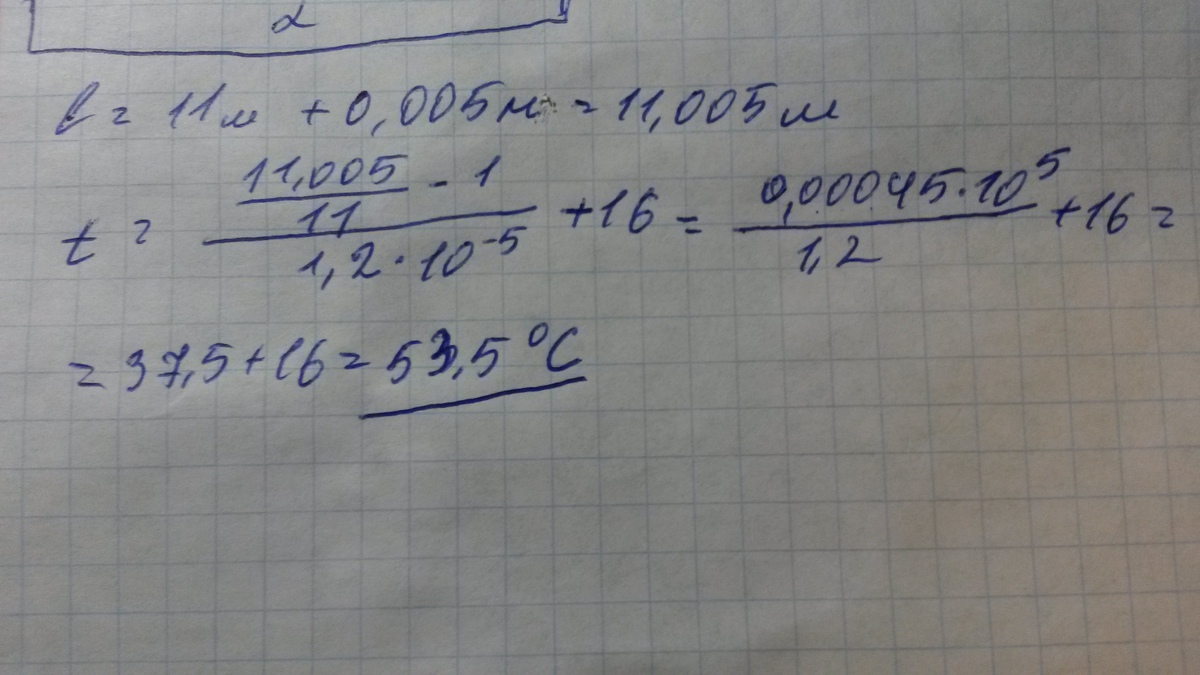 α
l = 11м + 0,005м = 11,005м
t = (11,005/11 - 1)/(1,2·10⁻⁵) + 16 = (0,00045·10⁵)/(1,2) + 16 =
= 37,5 + 16 = 53,5 °C